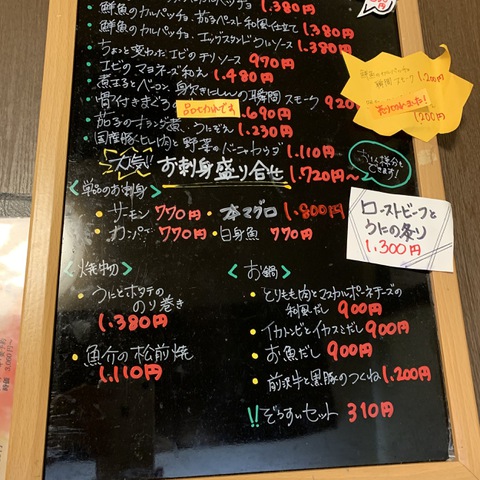 1,380円
鮮魚のカルパッチョ、 1,380円
鮮魚のカルパッチョ、エッグスタンドウルソース 1,380円
ちょっと変わったエビのチリソース 970円
エビのマヨネーズ和え 1,480円
煮玉子とベーコン、身欠きにしんの瞬間スモーク 920
骨付きまぐろの 品切れです 1,690円
茄子のオランダ煮、うにぞえ 1,230円
国産豚ヒレ肉と野菜のバーニャカウダ 1,110円
大人気!! お刺身盛り合せ 1,720円〜
できます!
<単品のお刺身>
・サーモン 770円 ・本マグロ 1,800円
・カンパチ 770円 ・白身魚 770円
<焼物>
・うにとホタテののり巻き
1,380円
・魚介の松前焼
1,110円
<お鍋>
・とりもも肉とマスカルポーネチーズの
和風だし 900円
・イカトンビとイカスミだし 900円
・お魚だし 900円
・前沢牛と黒豚のつくね 1,200円
!!ぞうすいセット 310円
鮮魚のカルパッチョ
瞬間スモーク 1,200円
売り切れました!
1,200円
ローストビーフと
うにの炙り
1,300円